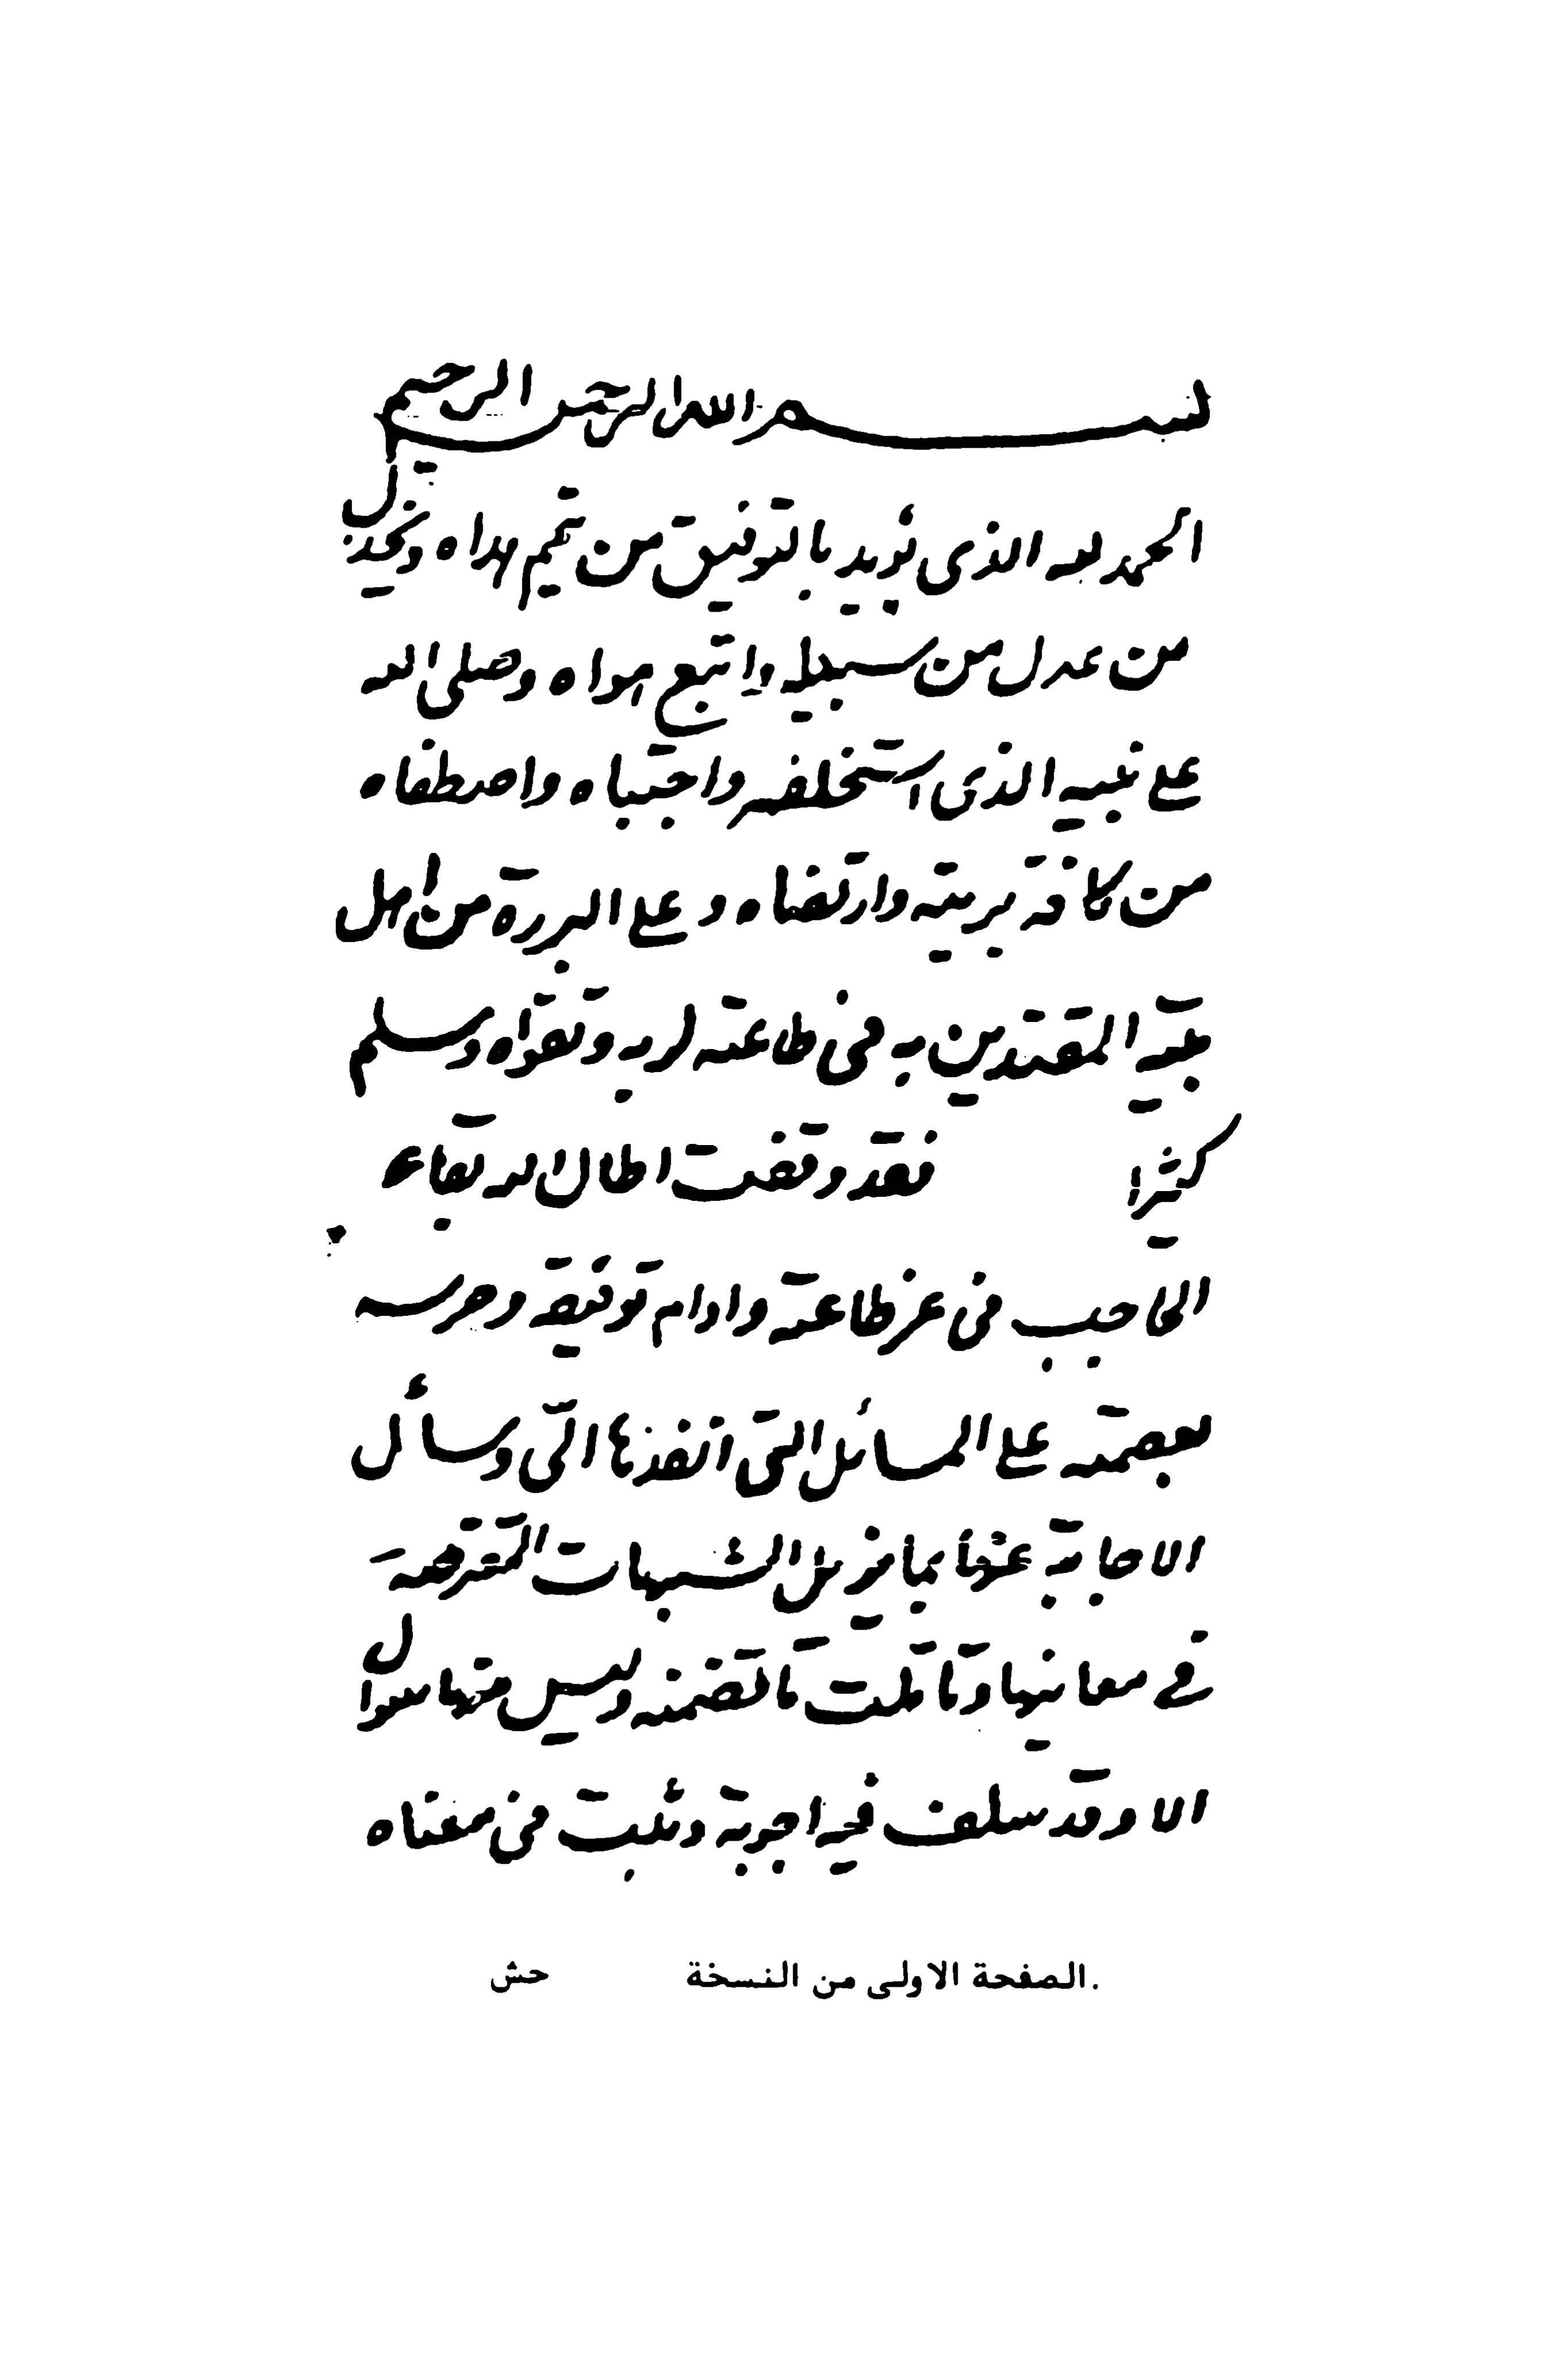 بسم الله الرحمن الرحيم
الحمد لله الذى يؤيد بالتوفيق من يمم هداه ويخذل
من عدل عن سبيله واتبع هواه وصلى الله
على نبيه الذى استخلفه واجتباه واصطفاه
من كافة بريته وارتضاه وعلى البررة من اهل
بيته المقتدين به فى طاعته لربه وتقواه وسلم
كثيرا فقد وقفت اطال الله بقاء
الحاجب فى عز طاعته وادام توفيقه وحرسه
بعصمته على المسائل التى انفذها الىّ وسأل
الاجابة عنها بما يزيل الشبهات المعترضة
فى معانيها وتأملت ما تضمنه وليس منها سؤال
الا وقد سلف فيه اجوبة وثبت فى معناه
الصفحة الاولى من النسخة حش